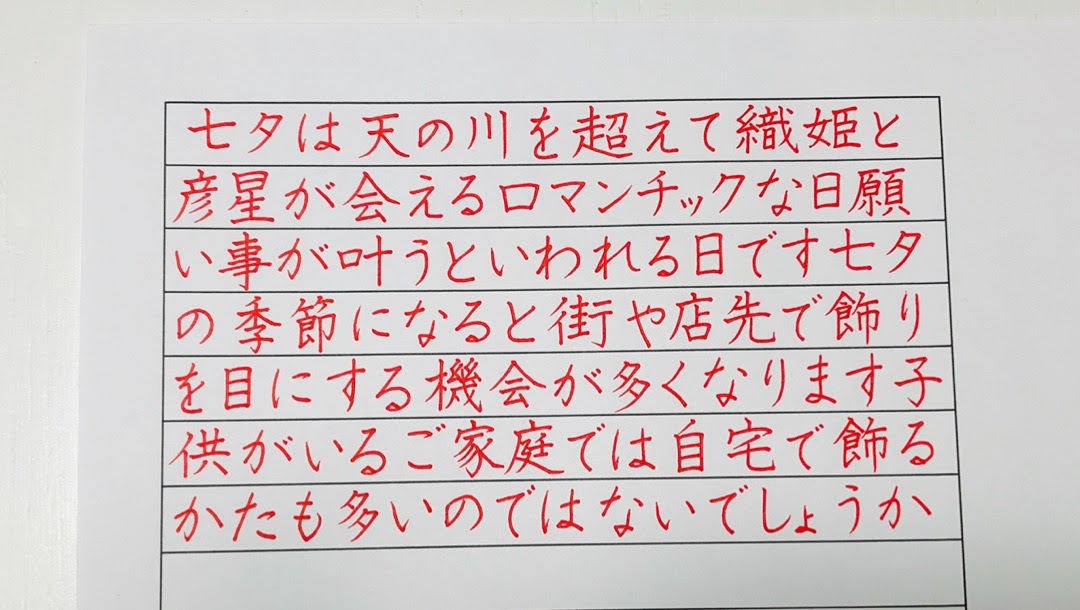 七夕は天の川を超えて織姫と
彦星が会えるロマンチックな日願
い事が叶うといわれる日です七夕
の季節になると街や店先で飾り
を目にする機会が多くなります子
供がいるご家庭では自宅で飾る
かたも多いのではないでしょうか